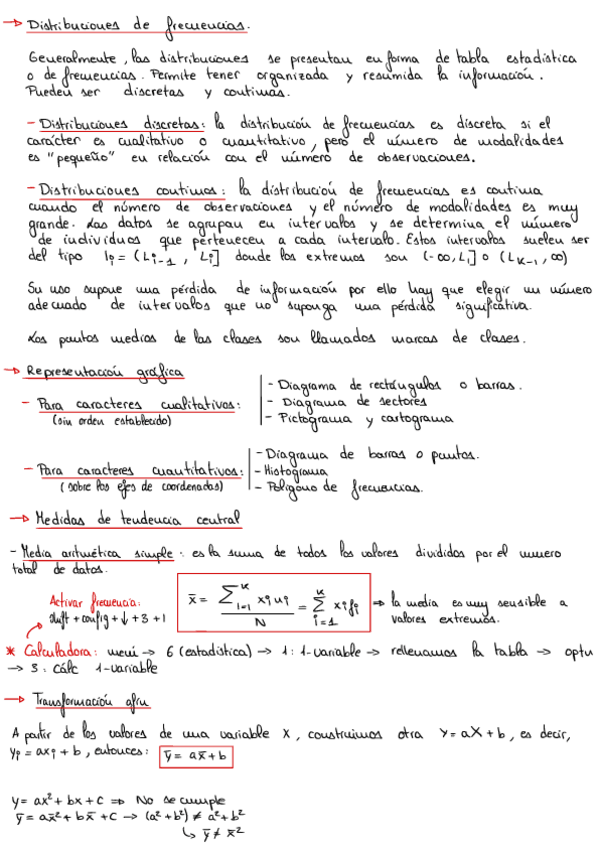 → Distribuciones de frecuencias.
Generalmente, las distribuciones se presentan en forma de tabla estadística
o de frecuencias. Permite tener organizada y resumida la información.
Pueden ser discretas y continuas.
- Distribuciones discretas: la distribución de frecuencias es discreta si el
carácter es cualitativo o cuantitativo, pero el número de modalidades
es "pequeño" en relación con el número de observaciones.
- Distribuciones continuas: la distribución de frecuencias es continua
cuando el número de observaciones y el número de modalidades es muy
grande. Los datos se agrupan en intervalos y se determina el número
de individuos que pertenecen a cada intervalo. Estos intervalos suelen ser
del tipo Ii = (Li-1, Li] donde los extremos son (-∞, Li] o (LK-1, ∞)
Su uso supone una pérdida de información por ello hay que elegir un número
adecuado de intervalos que no suponga una pérdida significativa.
Los puntos medios de las clases son llamados marcas de clases.
→ Representación gráfica
- Para caracteres cualitativos:
(sin orden establecido)
- Diagrama de rectángulos o barras.
- Diagrama de sectores
- Pictograma y cartograma
- Para caracteres cuantitativos:
(sobre los ejes de coordenadas)
- Diagrama de barras o puntos.
- Histograma
- Polígono de frecuencias.
→ Medidas de tendencia central
- Media aritmética simple: es la suma de todos los valores divididos por el numero
total de datos.
Activar frecuencia:
shift + config + ↓ + 3 + 1
x̄ = Σ^K_{i=1} xi ni / N = Σ^K_{i=1} xi fi
⇒ la media es muy sensible a
valores extremos.
* Calculadora: menú → 6 (estadística) → 1: 1-variable → rellenamos la tabla → optn
→ 3: cálc 1-variable
→ Transformación afín
A partir de los valores de una variable X, construimos otra Y = aX + b, es decir,
yi = axi + b, entonces: ȳ = ax̄ + b
y = ax² + bx + c ⇒ No se cumple
ȳ = ax̄² + bx̄ + c → (a² + b²) ≠ a² + b²
↳ ȳ ≠ x̄²